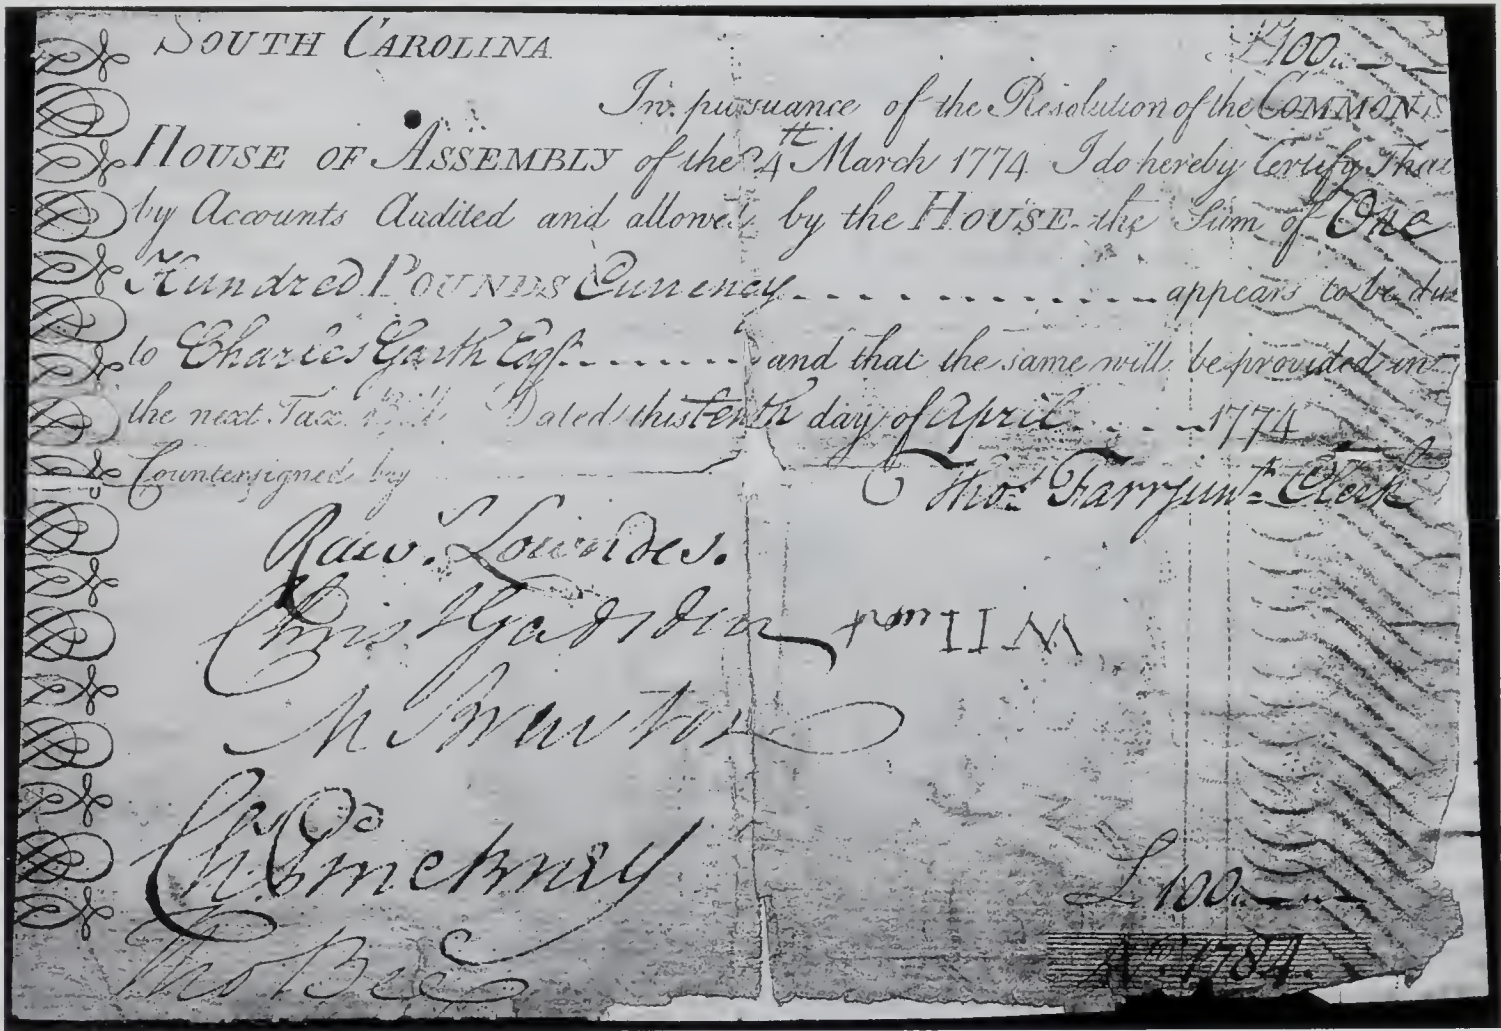 SOUTH CAROLINA
£100.. — —
In pursuance of the Resolution of the COMMONS
HOUSE OF ASSEMBLY of the 24th March 1774 I do hereby Certify That
by Accounts Audited and allowed by the HOUSE the Sum of One
Hundred POUNDS Currency appears to be due
to Charles Garth Esqr. and that the same will be provided in
the next Tax Bill Dated this tenth day of April 1774
Countersigned by
Thos. Farr junr. Clerk
Raw. Lowndes.
Chris Gadsden
M Brewton
Chs. Pinckney
Tho Bee
£100.. — —
No. 1784.